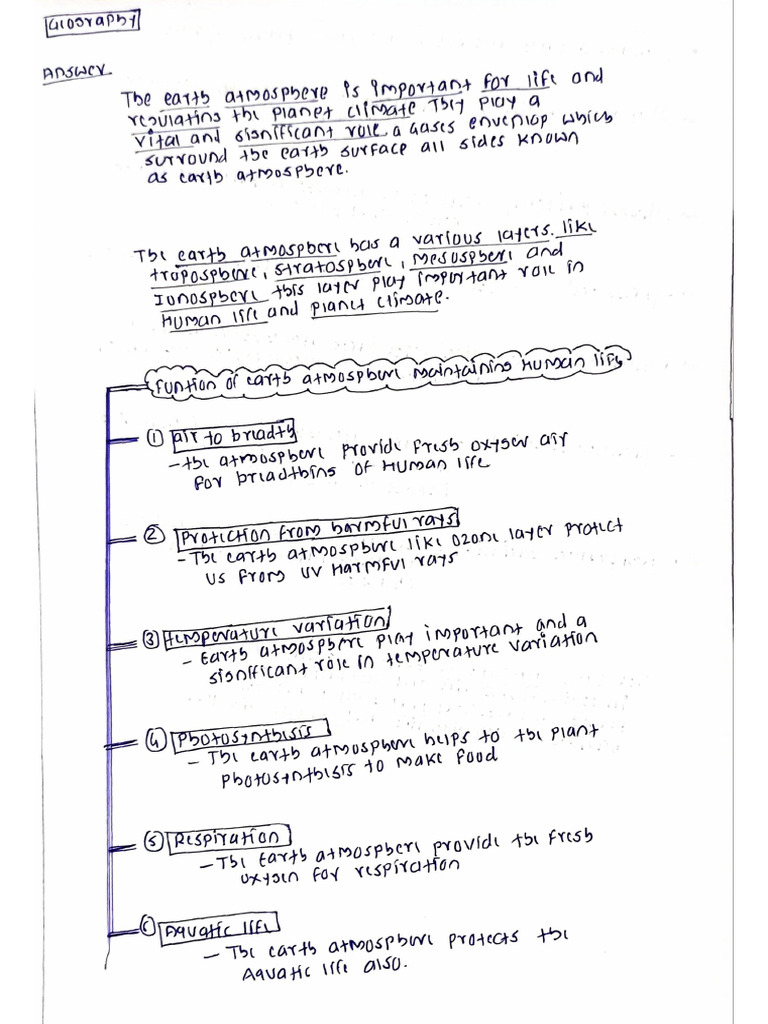 Geography
Answer
The earth atmosphere is important for life and
regulating the planet climate They play a
vital and significant role a Gases envenlop which
surround the earth surface all sides known
as earth atmosphere.
The earth atmosphere has a various layers. like
troposphere, stratosphere, mesosphere and
Ionosphere this layer play important role in
Human life and planet climate.
funtion of earth atmosphere maintaining Human life
① air to breadth
- the atmosphere provide fresh oxygen air
for breadthing of Human life
② Protection from harmful rays
- The earth atmosphere like ozone layer protect
us from UV Harmful rays
③ temperature variation
- Earth atmosphere play important and a
significant role in temperature variation
④ Photosynthesis
- The earth atmosphere helps to the plant
photosynthesis to make food
⑤ Respiration
- The Earth atmosphere provide the fresh
oxygen for respiration
⑥ Aquatic life
- The earth atmosphere protects the
Aquatic life also.